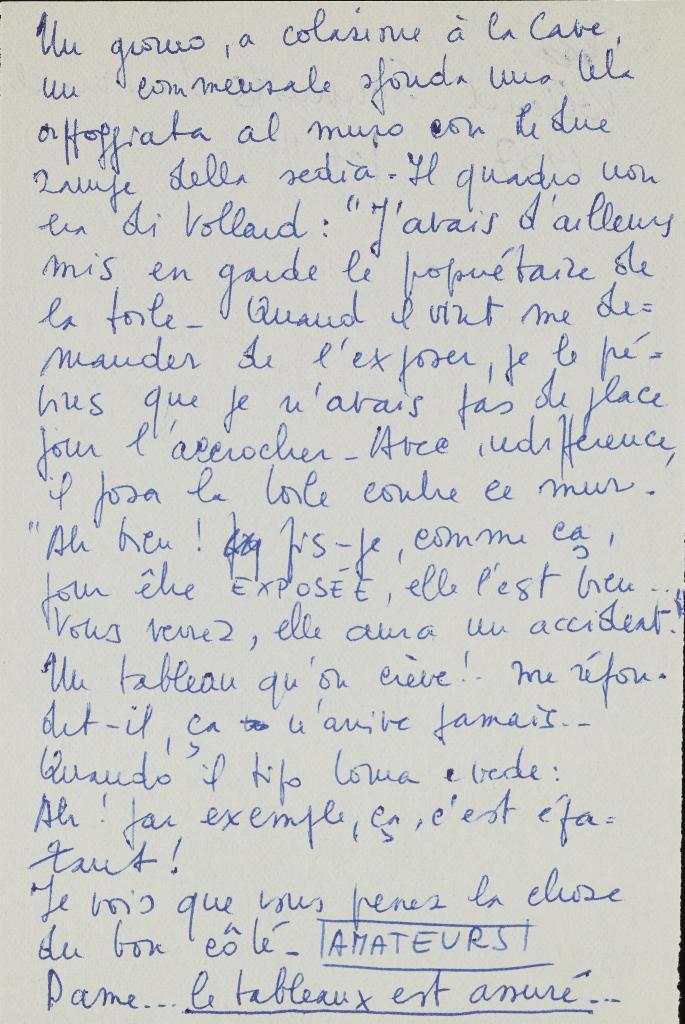 Un giorno, a colazione à la Cave,
un commensale sfonda una tela
appoggiata al muro con le due
zampe della sedia - Il quadro non
era di Vollard : "J'avais d'ailleurs
mis en garde le popriétaire de
la toile - Quand il vint me de=
mander de l'exposer, je le pé=
vins que je n'avais pas de place
pour l'accrocher - Avec indifférence,
il posa la toile contre ce mur.
"Ah bien ! fis-je, comme ça,
pour être EXPOSÉE, elle l'est bien...
Vous verrez, elle aura un accident."
Un tableau qu'on crève ! me répon-
dit-il, ça n'arrive jamais...
Quando il tipo torna e vede :
Ah ! par exemple, ça, c'est épa=
tant !
Je vois que vous penez la chose
du bon côté - AMATEURS
Dame... le tableaux est assuré...